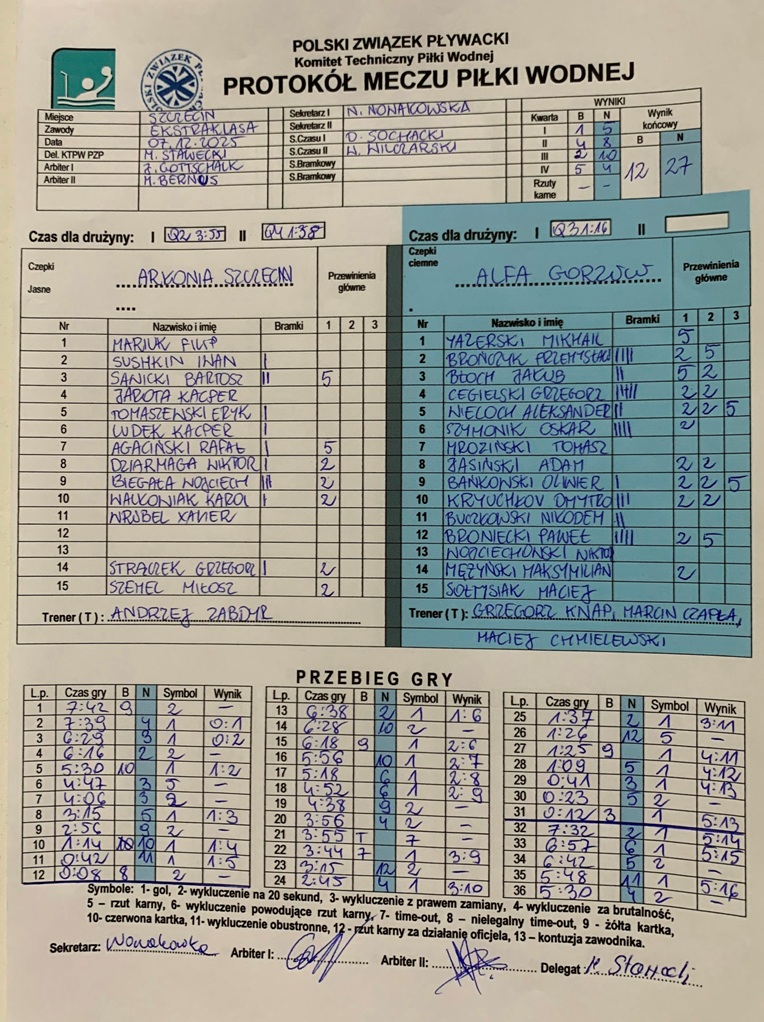 POLSKI ZWIĄZEK PŁYWACKI
Komitet Techniczny Piłki Wodnej
PROTOKÓŁ MECZU PIŁKI WODNEJ
Miejsce SZCZECIN Sekretarz I N. NOWAKOWSKA
Zawody EKSTRAKLASA Sekretarz II
Data 07.12.2025 S.Czasu I D. SOCHACKI
Del. KTPW PZP M. STAWECKI S.Czasu II W. WILCZARSKI
Arbiter I J. GOTTSCHALK S.Bramkowy
Arbiter II M. BERNUS S.Bramkowy
WYNIKI
Kwarta B N Wynik końcowy
I 1 5 B N
II 4 8
III 2 10 12 27
IV 5 4
Rzuty karne – –
Czas dla drużyny: I Q2 3:55 II Q4 1:38
Czepki Jasne ARKONIA SZCZECIN Przewinienia główne
Nr Nazwisko i imię Bramki 1 2 3
1 MARIUK FILIP
2 SUSHKIN IWAN I
3 SANICKI BARTOSZ II 5
4 JAROTA KACPER
5 TOMASZEWSKI ERYK I
6 LUDEK KACPER I
7 AGACIŃSKI RAFAŁ I 5
8 DZIARMAGA WIKTOR I 2
9 BIEGAŁA WOJCIECH III 2
10 WALKONIAK KAROL I 2
11 WRÓBEL XAWER
12
13
14 STRĄCZEK GRZEGORZ I 2
15 SZEMEL MIŁOSZ 2
Trener (T) : ANDRZEJ ZABDYR
Czas dla drużyny: I Q3 1:16 II
Czepki ciemne ALFA GORZÓW Przewinienia główne
Nr Nazwisko i imię Bramki 1 2 3
1 YAZERSKI MIKHAIL 5
2 BROŃCZYK PRZEMYSŁAW IIII 2 5
3 BŁOCH JAKUB II 5 2
4 CEGIELSKI GRZEGORZ IIIII 2 2
5 NIELOCH ALEKSANDER II 2 2 5
6 SZYMONIK OSKAR IIII 2
7 MROZIŃSKI TOMASZ
8 JASIŃSKI ADAM 2 2
9 BAŃKOWSKI OLIWIER I 2 2 5
10 KRYUCHKOV DMYTRO III 2 2
11 BUCZKOWSKI NIKODEM II
12 BRONIECKI PAWEŁ IIII 2 5
13 WOJCIECHOWSKI WIKTOR
14 MĘŻYŃSKI MAKSYMILIAN 2
15 SOŁTYSIAK MACIEJ
Trener (T) : GRZEGORZ KNAP, MARCIN CZAPLA,
MACIEJ CHMIELEWSKI
PRZEBIEG GRY
L.p. Czas gry B N Symbol Wynik
1 7:42 9 2 –
2 7:39 4 1 0:1
3 6:29 3 1 0:2
4 6:16 2 2 –
5 5:30 10 1 1:2
6 4:47 3 5 –
7 4:06 3 2 –
8 3:15 5 1 1:3
9 2:56 9 2 –
10 1:14 10 1 1:4
11 0:42 11 1 1:5
12 0:08 8 2 –
L.p. Czas gry B N Symbol Wynik
13 6:38 2 1 1:6
14 6:28 10 2 –
15 6:18 9 1 2:6
16 5:56 10 1 2:7
17 5:18 6 1 2:8
18 4:52 6 1 2:9
19 4:38 9 2 –
20 3:56 4 2 –
21 3:55 T 7 –
22 3:44 7 1 3:9
23 3:15 12 2 –
24 2:45 4 1 3:10
L.p. Czas gry B N Symbol Wynik
25 1:37 2 1 3:11
26 1:26 12 5 –
27 1:25 9 1 4:11
28 1:09 5 1 4:12
29 0:41 3 1 4:13
30 0:23 5 2 –
31 0:12 3 1 5:13
32 7:32 2 1 5:14
33 6:57 6 1 5:15
34 6:42 5 2 –
35 5:48 11 1 5:16
36 5:30 4 2 –
Symbole: 1- gol, 2- wykluczenie na 20 sekund, 3- wykluczenie z prawem zamiany, 4- wykluczenie za brutalność,
5 – rzut karny, 6- wykluczenie powodujące rzut karny, 7- time-out, 8 – nielegalny time-out, 9 - żółta kartka,
10- czerwona kartka, 11- wykluczenie obustronne, 12 - rzut karny za działanie oficjela, 13 – kontuzja zawodnika.
Sekretarz: Nowakowska Arbiter I: Arbiter II: Delegat